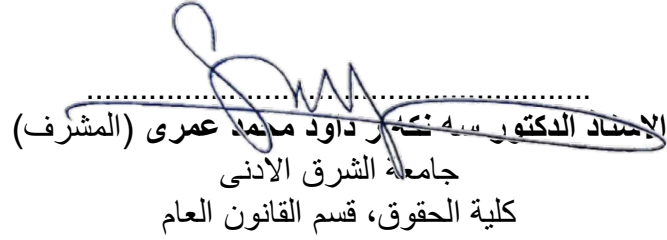 ............................................................
الاستاذ الدكتور سه نكه ر داود محمد عمرى (المشرف)
جامعة الشرق الادنى
كلية الحقوق، قسم القانون العام